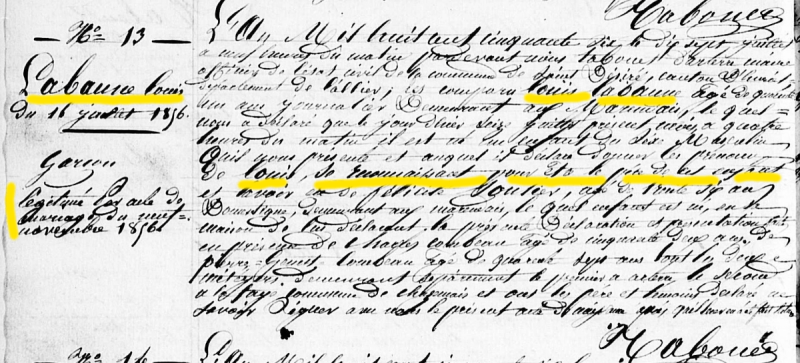 Tabouet
N.o 13
Labaune louis
du 16 juillet 1856.
Garçon
légitimé par acte de
mariage du neuf
novembre 1856
L'An Mil huit cent cinquante six le dix sept juillet
à neuf heures du matin pardevant nous Tabouet maire
officier de l'état civil de la commune de Saint Désiré, canton
département de l'allier; est comparu louis labaune agé de quarante
un ans journalier Demeurant au Marmais, le quel
nous a déclaré que le jour d'hier Seize juillet présent mois, à quatre
heures du matin il est né un Enfant du Sexe Masculin
qu'il nous présente et auquel il déclare donner les prénoms
De louis, Se reconnaissant pour être le père de cet enfant
et avoir eu de Soulier, agé de trente Six ans
Domestique, demeurant au marmais, le quel enfant est né, en la
maison de lui déclarant, la présente Déclaration et présentation faite
en présence de Charles combeau agé de cinquante deux ans, de
combeau agé de quarante sept ans tout deux
métayers demeurant séparément le premier a le Second
a la faye commune de chazemais et ont les père et temoins déclaré ne
Savoir Signer avec nous le présent acte
Tabouet
N.o 14
L'An Mil huit cent